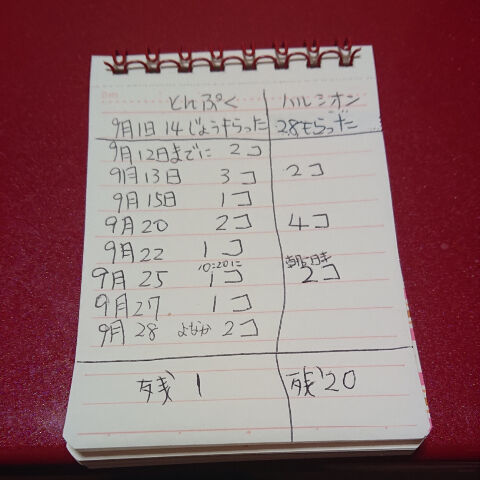 とんぷく ハルシオン
9月1日 14じょうもらった 28もらった
9月12日までに 2コ
9月13日 3コ 2コ
9月15日 1コ
9月20 2コ 4コ
9月22 1コ
10:20に
9月25 1コ 2コ
9月27. 1コ
9月28 よなか 2コ
残 1 残 20